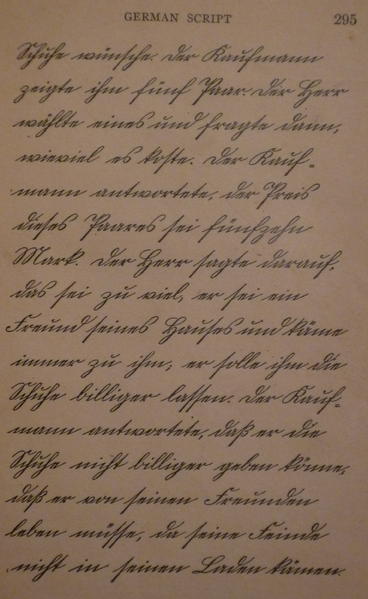 GERMAN SCRIPT 295
Schuhe wünsche. Der Kaufmann
zeigte ihm fünf Paar. Der Herr
wählte eines und fragte dann,
wieviel es koste. Der Kauf-
mann antwortete, der Preis
dieses Paares sei fünfzehn
Mark. Der Herr sagte darauf,
das sei zu viel, er sei ein
Freund seines Hauses und käme
immer zu ihm; er solle ihm die
Schuhe billiger lassen. Der Kauf-
mann antwortete, daß er die
Schuhe nicht billiger geben könne,
daß er von seinen Freunden
leben müsse, da seine Feinde
nicht in seinen Laden kämen.